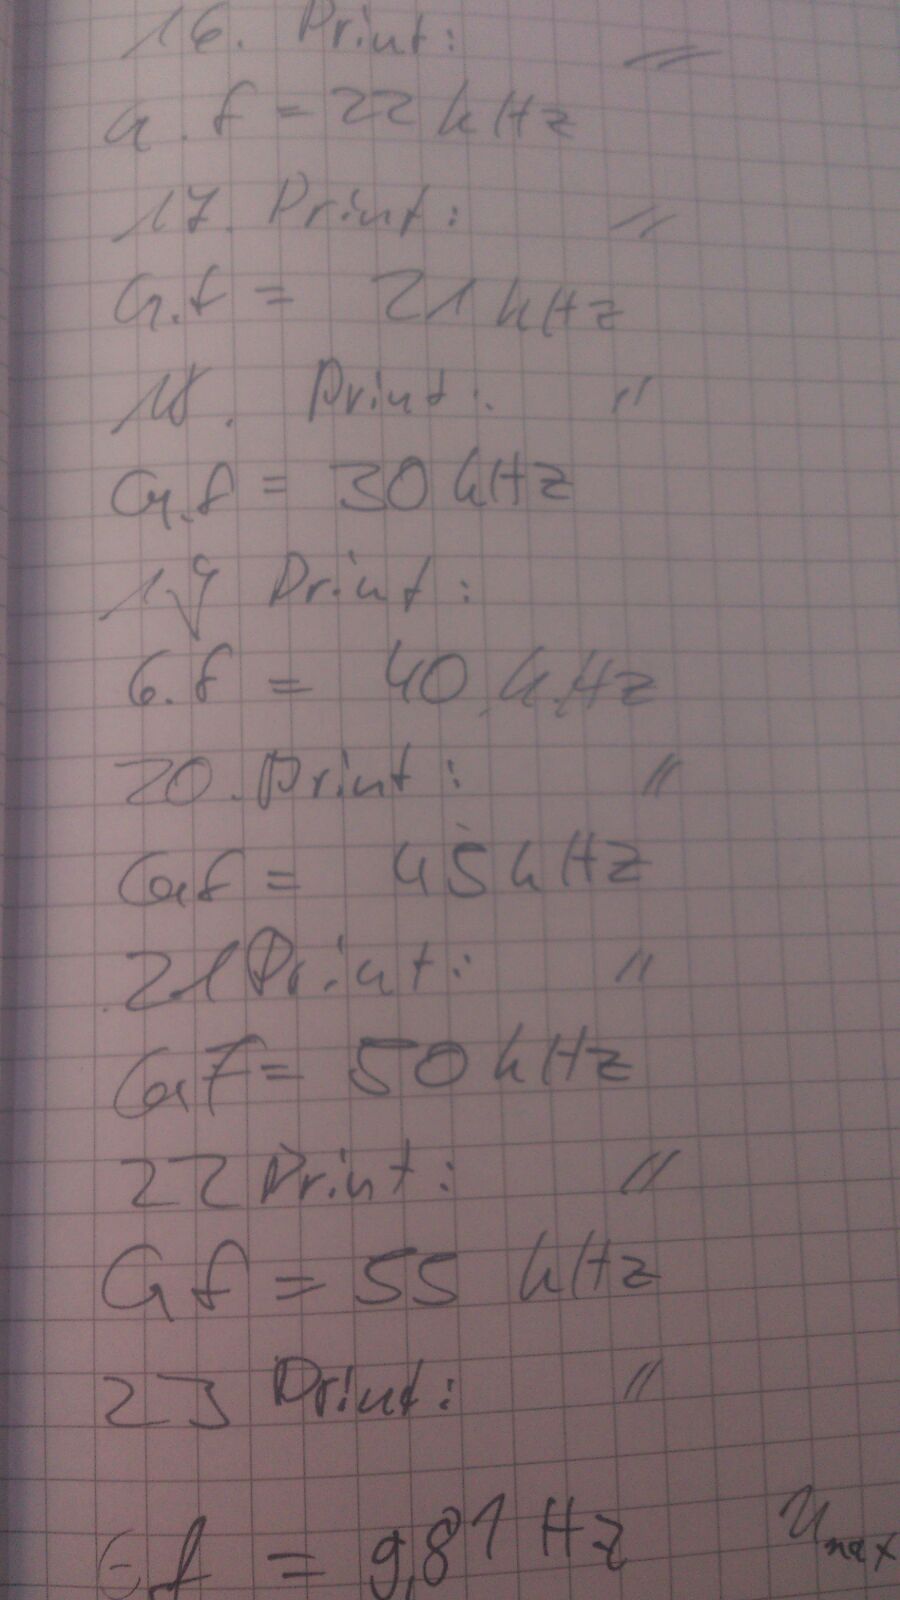 16. Print: "
G.f = 22 kHz
17. Print: "
G.f = 21 kHz
18. Print: "
G.f = 30 kHz
19 Print:
G.f = 40 kHz
20. Print: "
Gf = 45 kHz
21 Print: "
Gf = 50 kHz
22 Print: "
Gf = 55 kHz
23 Print: "
f = 9,81 Hz U max